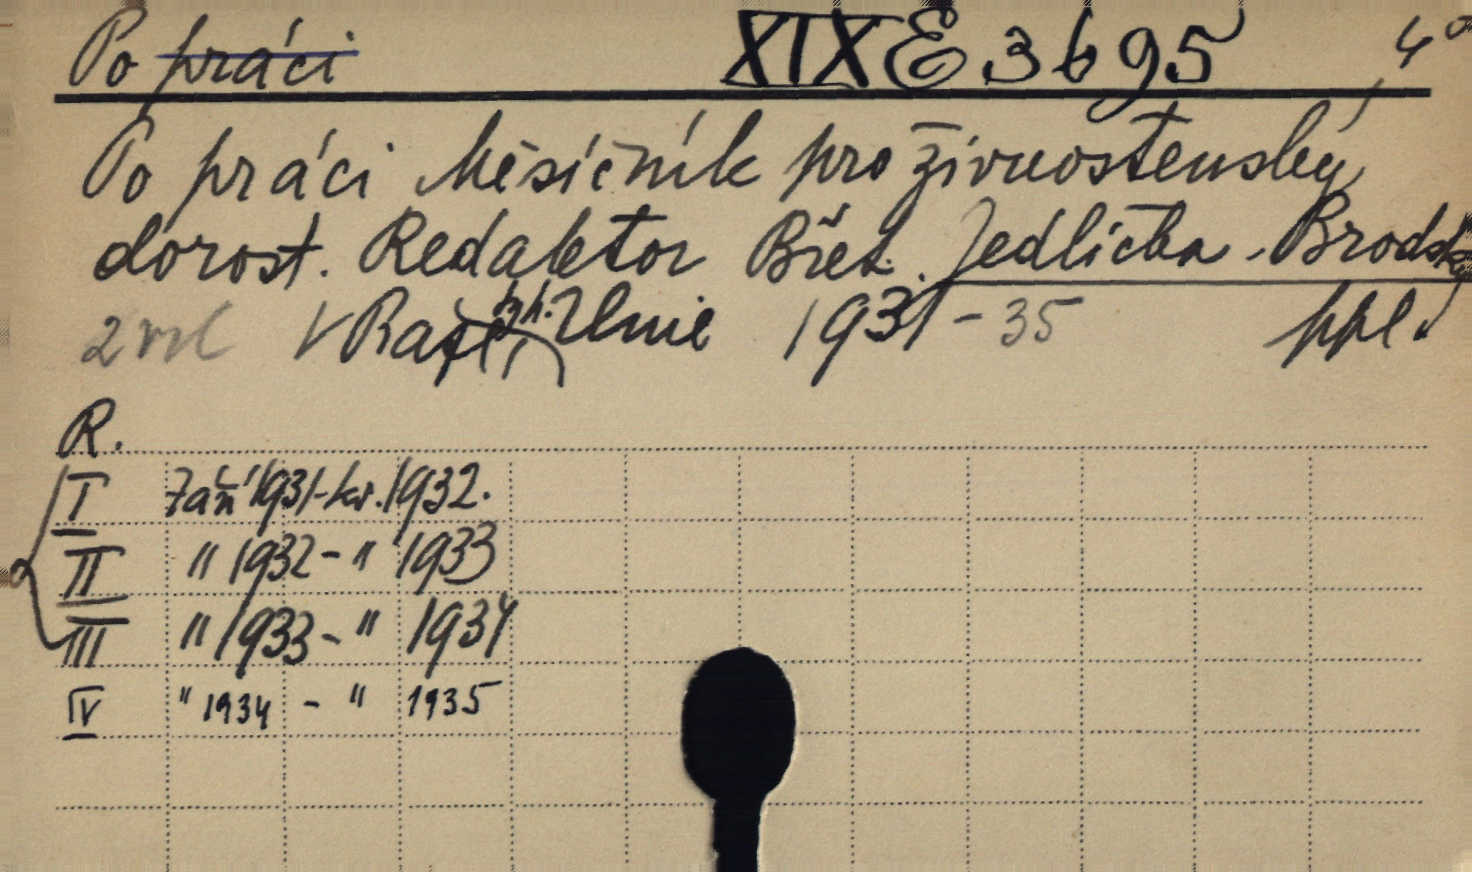 Po práci XIX E 3695 4°
Po práci Měsíčník pro živnostenský
dorost. Redaktor Břet. Jedlička-Brodský
2 vol V Praze, Unie 1931-35 ppl.
R.
I Zář 1931-kv. 1932.
II " 1932-" 1933
III " 1933-" 1934
IV " 1934 - " 1935